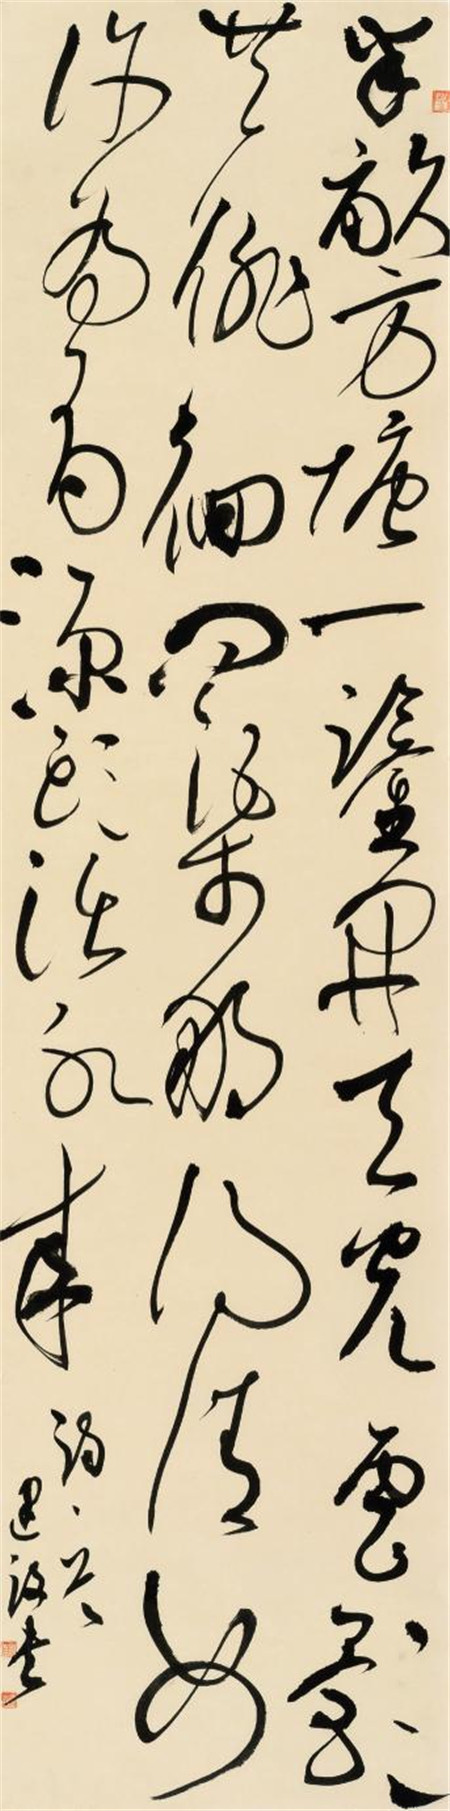 半畝方塘一鑒開天光雲影
共徘徊問渠那得清如
許為有源頭活水來
書